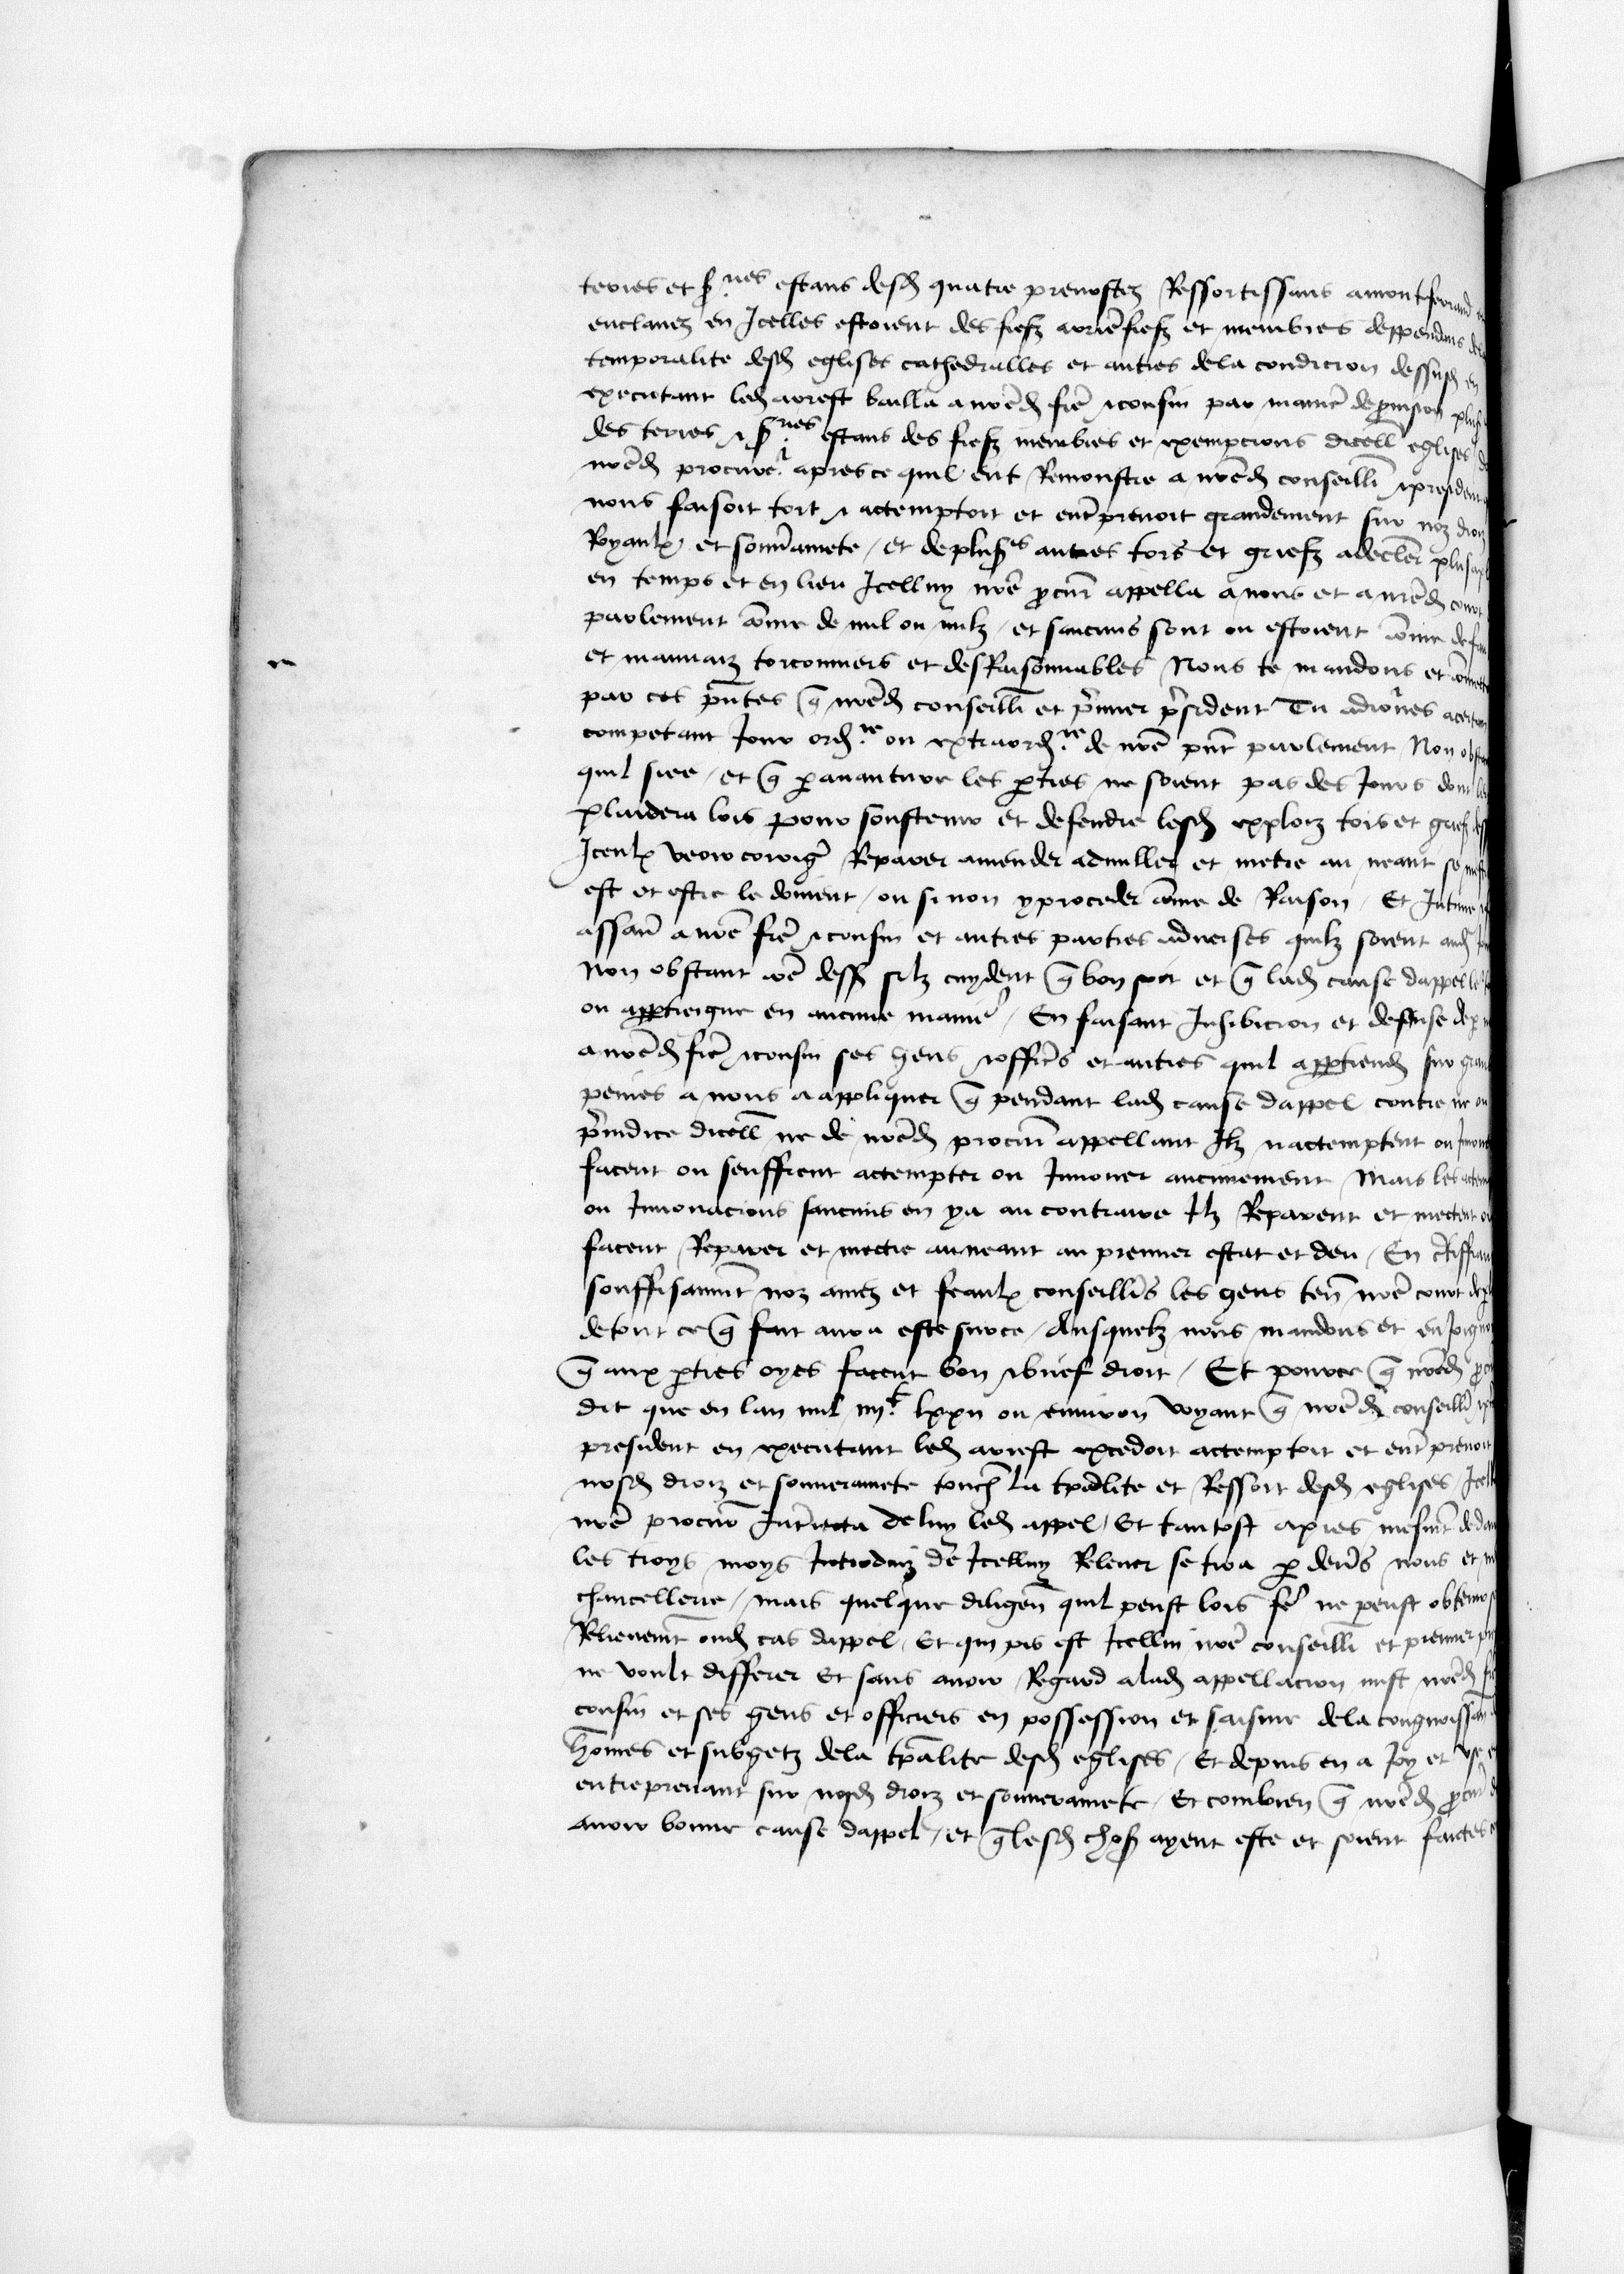 terres et s.ries estans desd quatre prevostez Ressortissans a montferrand
enclavez en Icelles estoient des fiefz arrierefiefz et membres deppendans dela
temporalite desd eglises cathedralles et autres dela condicion dessusd en
executant led arrest bailla a nred frere & cousin par maniere de provision plus
des terres & s.ries estans des fiefz membres et exempcions dicelles eglises
nred procureur apres ce quil eut Remonstre a nred conseiller & president
nous faisoit tort & actemptoit et entreprenoit grandement sur noz droiz
Royaulx et souverainete / et de plusrs autres tors et griefz a declerer plus a
en temps et en lieu Icelluy nre procur appella a nous et a nred court
parlement comme de nul ou nulz / et saucuns sont ou estoient comme de
et mauvaiz torconniers et desRaisonnables Nous te mandons et commettons
par ces pntes q nred conseiller et premier president Tu adjournes a certain
competant Jour ord.re ou extraord.re de nre pnt parlement Non obstant
quil siee / et q par avanture les parties ne soient pas des Jours dont
plaidera lors pour soustenir et defendre lesd exploiz tors et griefz
Iceulx veoir corriger Reparer amender adnuller et metre au neant se
est et estre le doivent / ou sinon y proceder comme de Raison / Et Intime
assavoir a nre frere & cousin et autres parties adverses quilz soient aud
Non obstant come dess silz cuydent q bon soit et q lad cause dappel
ou appartiengne en aucune maniere / En faisant Inhibicion et deffense
a nred frere & cousin ses gens & officiers et autres quil appartiendra sur grans
peines a nous a appliquer q pendant lad cause dappel contre ne ou
preiudice dicelle ne de nred procur appellant Ilz nactemptent ou Innovent
facent ou seuffrent actempter ou Innover aucunement / Mais les
ou Innovacions saucuns en y a au contraire Ilz Reparent et mectent
facent Reparer et mectre au neant au premier estat et deu / En certiffiant
souffisamment noz amez et feaulx conseillers les gens ten nre court
detout ce q fait aura este surce / Ausquelz nous mandons et enjoignons
q aux parties oyes facent bon & brief droit / Et pource q nred
dit que en lan mil iiiic lxxii ou environ voyant q nred conseiller
president en executant led arrest excedoit actemptoit et entreprenoit
nosd droiz et souverainete touch la tpalite et Ressort desd eglises /
nre procur Interjecta de luy led appel / Et tantost apres mesmt dedans
les troys moys Introduiz de Icelluy Relever se tira par devers nous et
chancellerie / mais quelque diligence quil peust lors fere ne peust obtenir
Relievemt oud cas dappel / Et qui pis est Icellui nre conseiller et premier
ne voult differer Et sans avoir Regard alad appellacion mist nred
cousin et ses gens et officiers en possession et saisine dela congnoissance
hommes et subgetz dela tpalite desd eglises / Et depuis en a Joy et use
entreprenant sur nosd droiz et souverainete / Et combien q nred procur
avoir bonne cause dappel / et q lesd choses ayent este et soient faictes